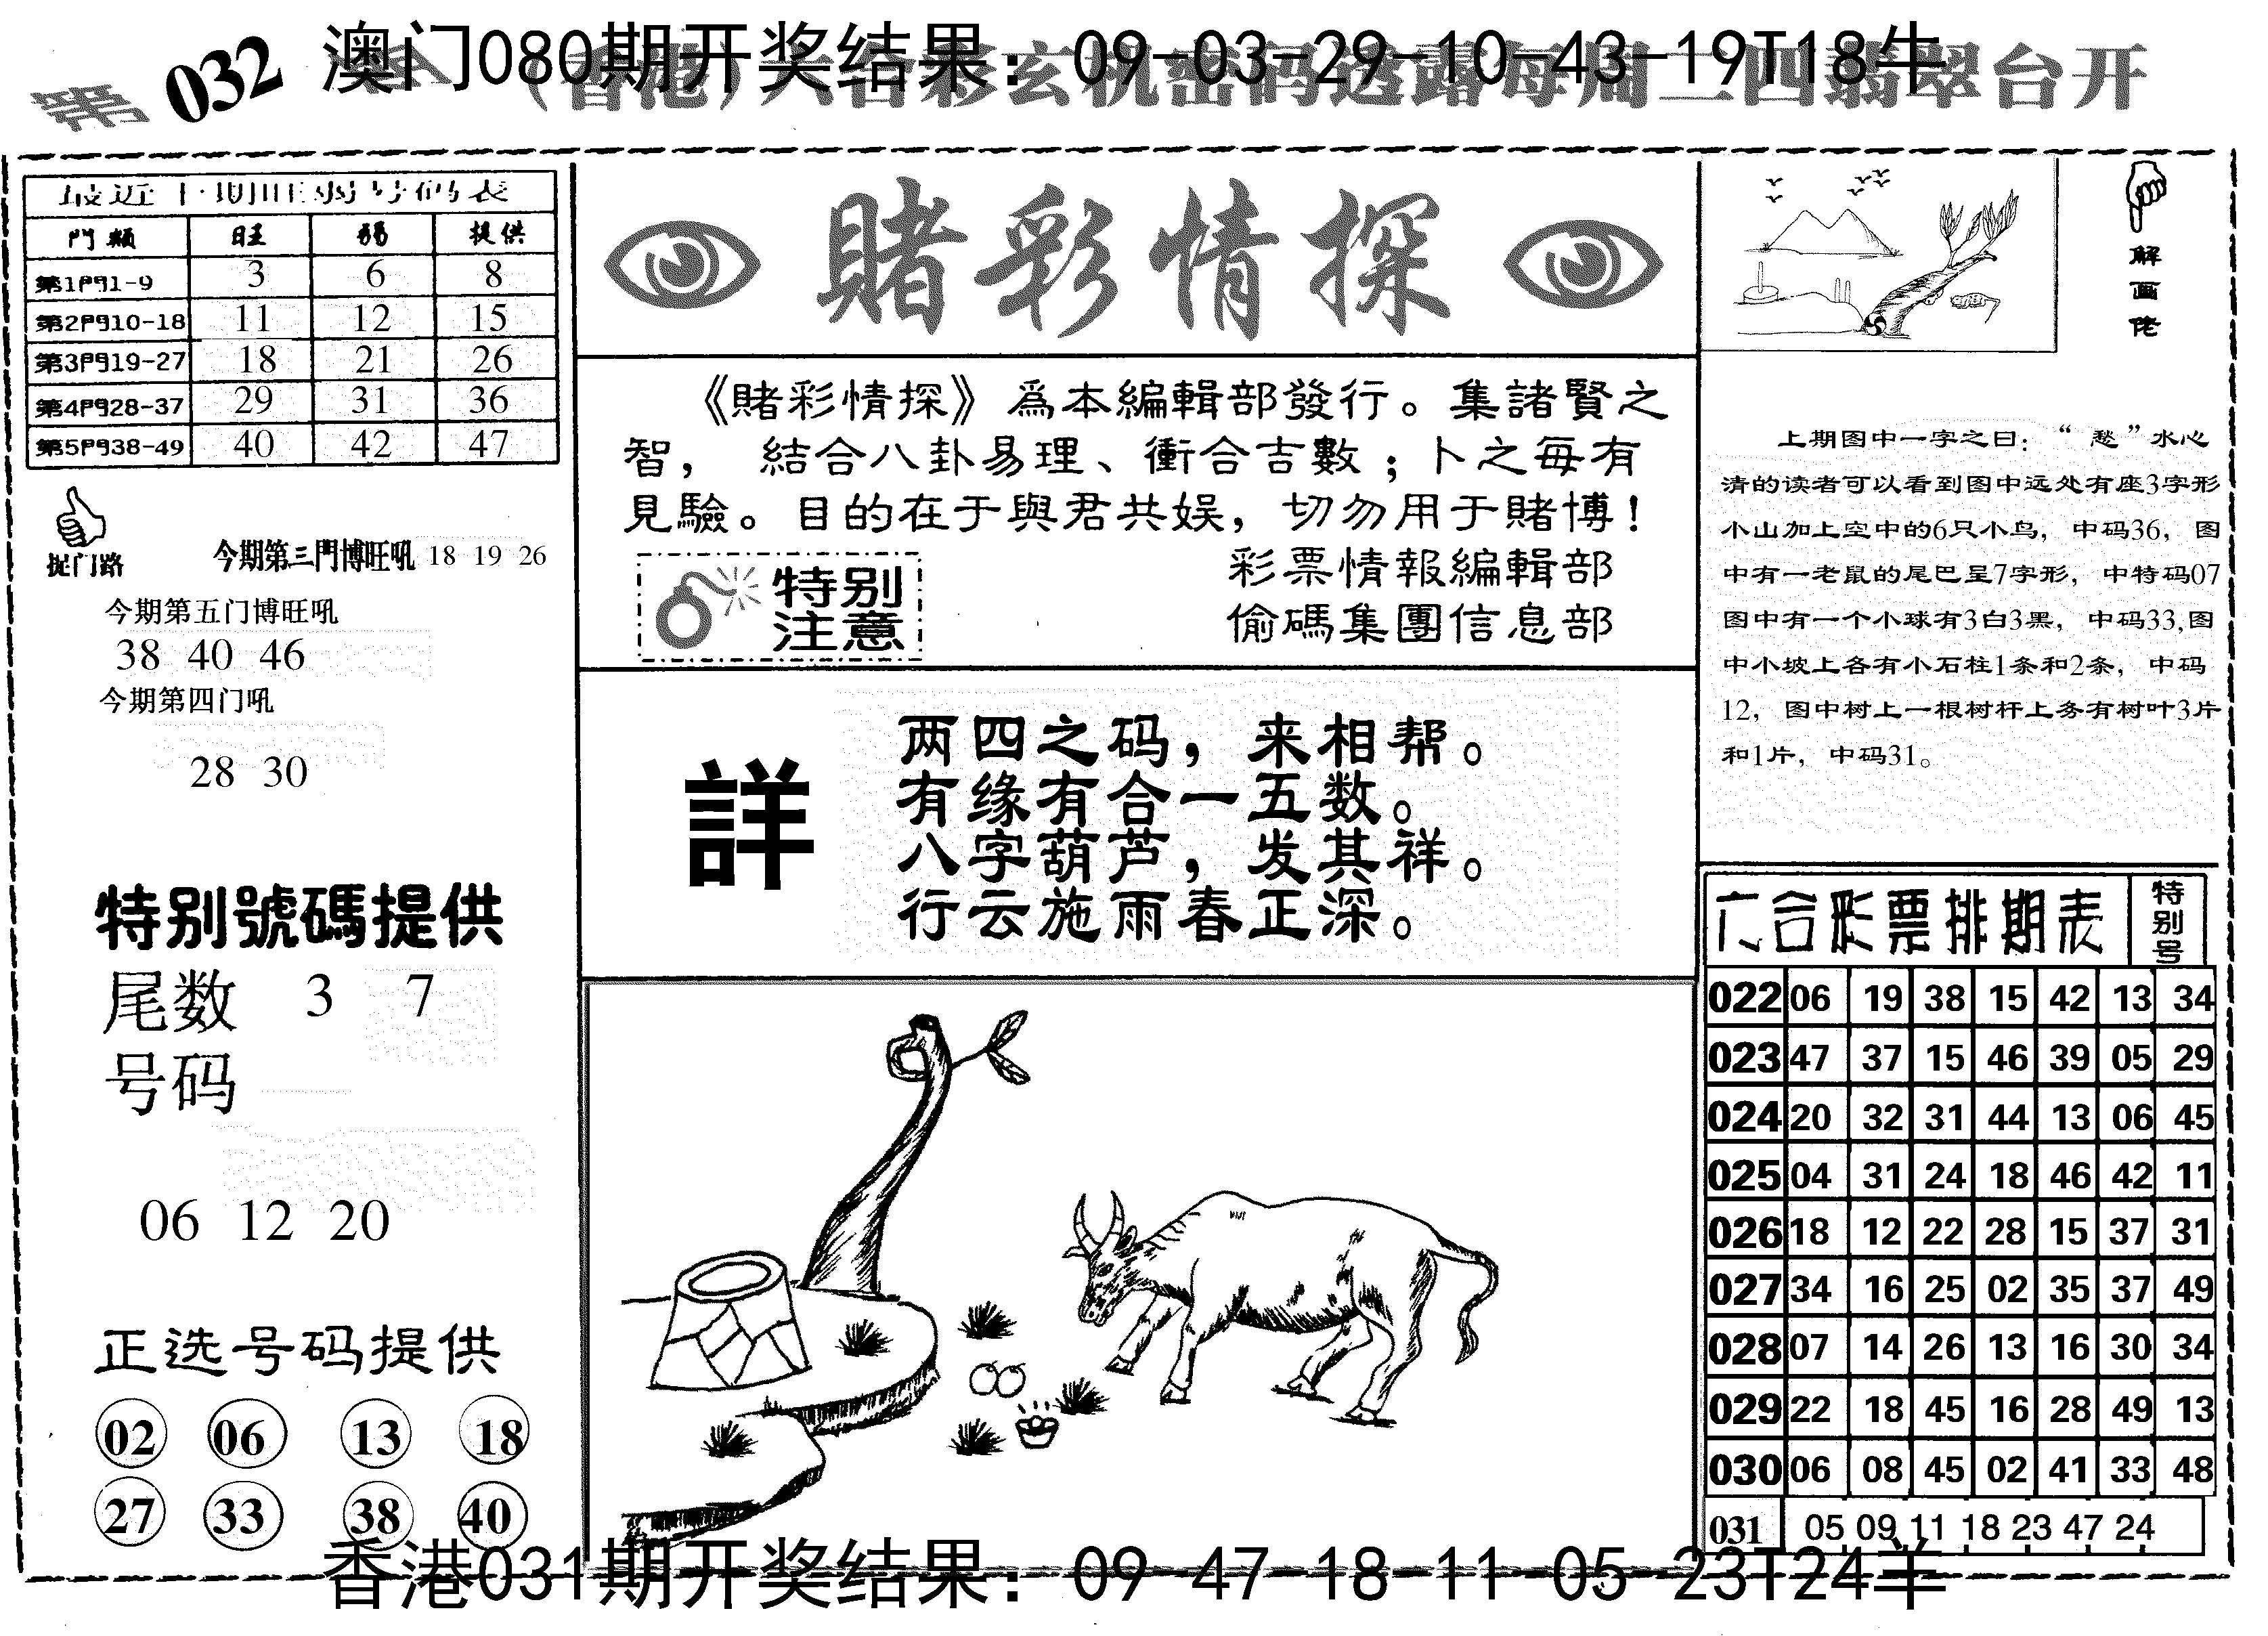 澳门080期开奖结果：09-03-29-10-43-19T18牛
第032 (香港)六合彩玄机密码透露每周二四翡翠台开
最近十期旺弱号码表
門類 旺 弱 提供
第1門1-9 3 6 8
第2門10-18 11 12 15
第3門19-27 18 21 26
第4門28-37 29 31 36
第5門38-49 40 42 47
捉门路 今期第三門博旺吼 18 19 26
今期第五门博旺吼
38 40 46
今期第四门吼
28 30
特别號碼提供
尾数 3 7
号码
06 12 20
正选号码提供
02 06 13 18
27 33 38 40
賭彩情探
《賭彩情探》為本編輯部發行。集諸賢之
智， 結合八卦易理、衝合吉數；卜之每有
見驗。目的在于與君共娱，切勿用于賭博！
彩票情報編輯部
偷碼集團信息部
特别
注意
詳
两四之码，来相帮。
有缘有合一五数。
八字葫芦，发其祥。
行云施雨春正深。
解画佬
上期图中一字之曰：“愁”水心
清的读者可以看到图中远处有座3字形
小山加上空中的6只小鸟，中码36，图
中有一老鼠的尾巴呈7字形，中特码07
图中有一个小球有3白3黑，中码33,图
中小坡上各有小石柱1条和2条，中码
12，图中树上一根树杆上务有树叶3片
和1片，中码31。
六合彩票排期表 特别号
022 06 19 38 15 42 13 34
023 47 37 15 46 39 05 29
024 20 32 31 44 13 06 45
025 04 31 24 18 46 42 11
026 18 12 22 28 15 37 31
027 34 16 25 02 35 37 49
028 07 14 26 13 16 30 34
029 22 18 45 16 28 49 13
030 06 08 45 02 41 33 48
031 05 09 11 18 23 47 24
香港031期开奖结果：09-47-18-11-05-23T24羊